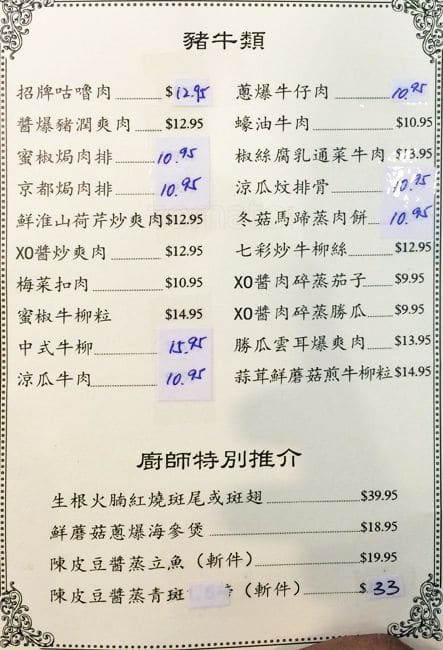 豬牛類
招牌咕嚕肉 $12.95
醬爆豬潤爽肉 $12.95
蜜椒焗肉排 10.95
京都焗肉排 10.95
鮮淮山荷芹炒爽肉 $12.95
XO醬炒爽肉 $12.95
梅菜扣肉 $10.95
蜜椒牛柳粒 $14.95
中式牛柳 15.95
涼瓜牛肉 10.95
蔥爆牛仔肉 10.95
蠔油牛肉 $10.95
椒絲腐乳通菜牛肉 $13.95
涼瓜炆排骨 10.95
冬菇馬蹄蒸肉餅 10.95
七彩炒牛柳絲 $12.95
XO醬肉碎蒸茄子 $9.95
XO醬肉碎蒸勝瓜 $9.95
勝瓜雲耳爆爽肉 $13.95
蒜茸鮮蘑菇煎牛柳粒 $14.95
廚師特別推介
生根火腩紅燒斑尾或斑翅 $39.95
鮮蘑菇蔥爆海參煲 $18.95
陳皮豆醬蒸立魚（斬件） $19.95
陳皮豆醬蒸青斑（斬件） $33